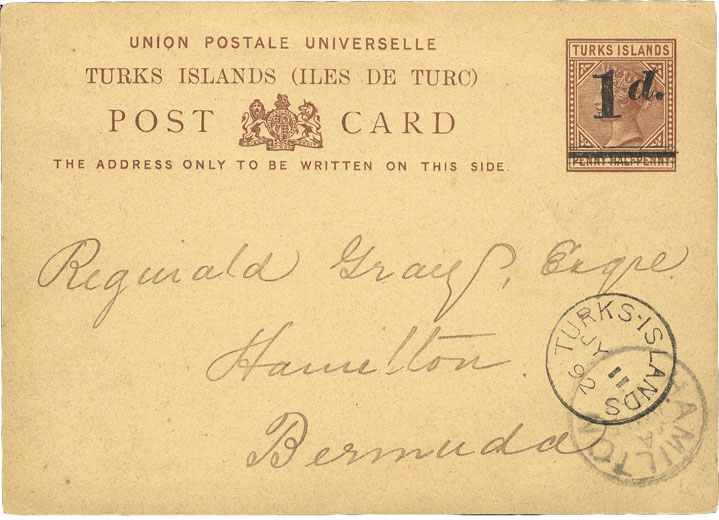 UNION POSTALE UNIVERSELLE
TURKS ISLANDS (ILES DE TURC)
POST CARD
THE ADDRESS ONLY TO BE WRITTEN ON THIS SIDE.
TURKS ISLANDS
1d.
PENNY HALFPENNY
Reginald Gray, Esqre.
Hamilton.
Bermuda
TURKS-ISLANDS
JY 11
92
HAMILTON